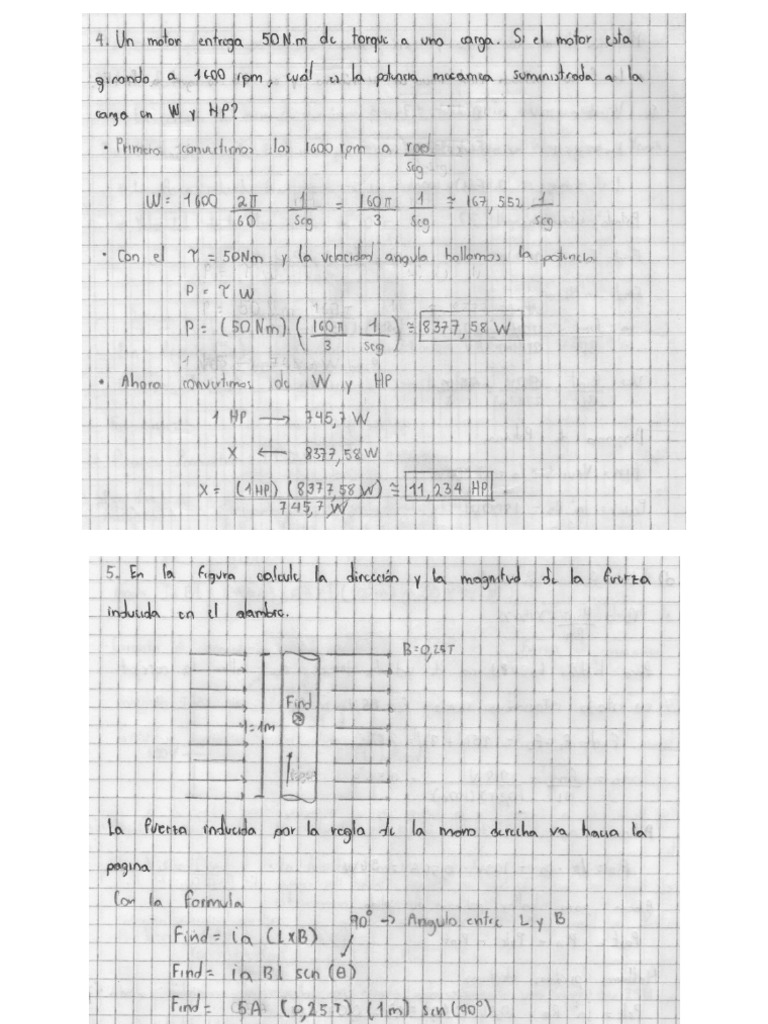 4. Un motor entrega 50N.m de torque a una carga. Si el motor esta
girando a 1600 rpm, cuál es la potencia mecanica suministrada a la
carga en W y HP?
• Primero convertimos los 1600 rpm a rad/seg
W = 1600 2π/60 1/seg = 160π/3 1/seg ≅ 167,552 1/seg
• Con el τ = 50Nm y la velocidad angula hallamos la potencia
P = τ W
P = (50 Nm) (160π/3 1/seg) ≅ 8377,58 W
• Ahora convertimos de W y HP
1 HP → 745,7 W
X ← 8377,58 W
X = (1HP) (8377,58 W)/745,7 W ≅ 11,234 HP.
5. En la figura calcule la dirección y la magnitud de la fuerza
inducida en el alambre.
B=0,25T
Find
⊗
l=1m
La fuerza inducida por la regla de la mano derecha va hacia la
pagina
Con la formula
90° → Angulo entre L y B
Find = ia (L×B)
Find = ia Bl sen (θ)
Find = 5A (0,25T) (1m) sen (90°)